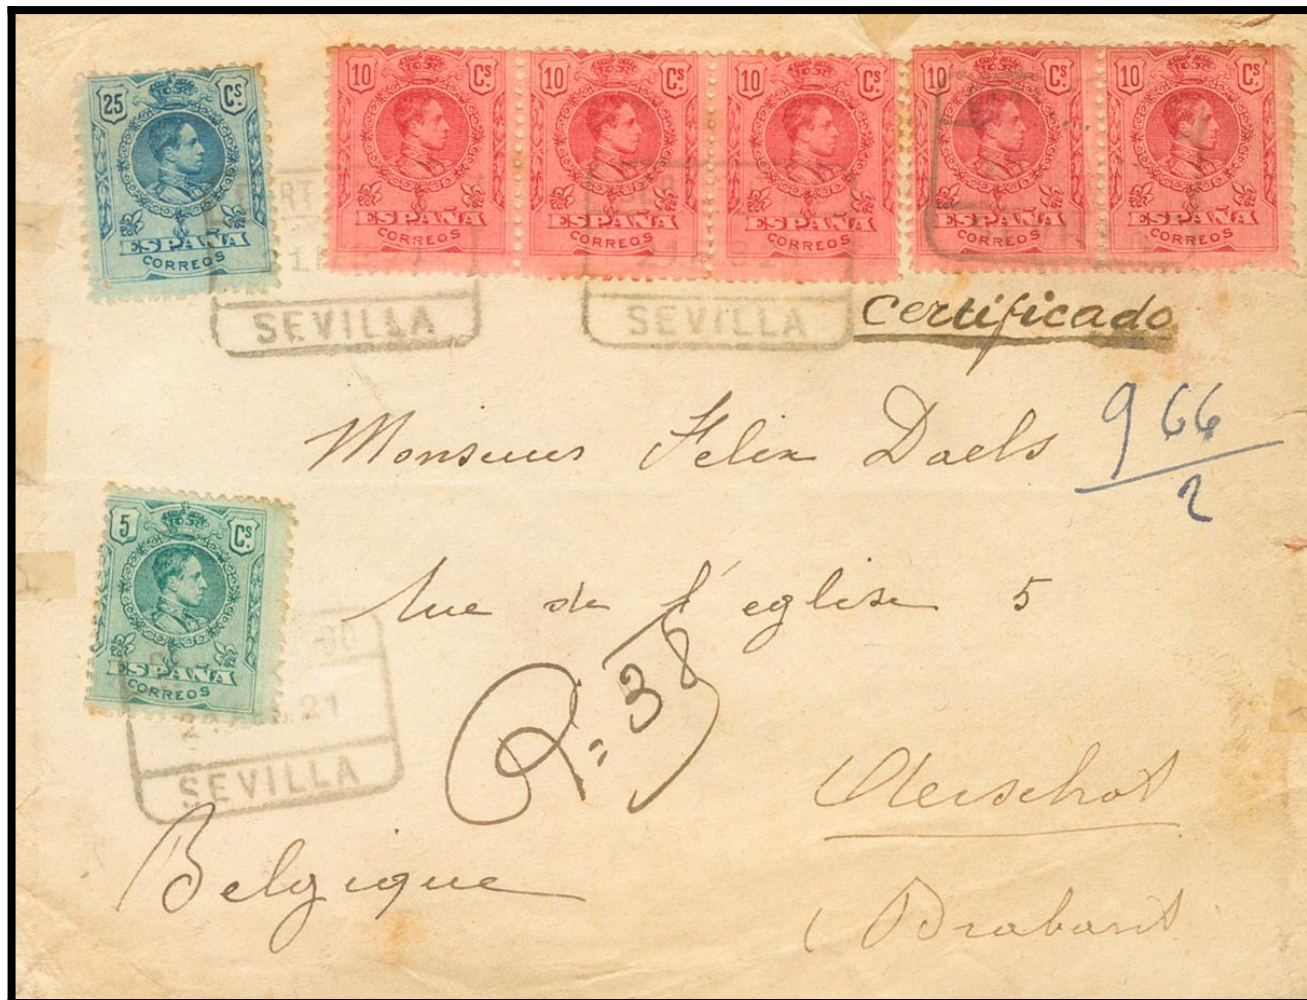 25 Cs.
ESPAÑA
CORREOS
10 Cs.
ESPAÑA
CORREOS
10 Cs.
ESPAÑA
CORREOS
10 Cs.
ESPAÑA
CORREOS
10 Cs.
ESPAÑA
CORREOS
10 Cs.
ESPAÑA
CORREOS
SEVILLA
SEVILLA
SEVILLA
Certificado
Monsieur Felix Daels
966
2
5 Cs.
ESPAÑA
CORREOS
21
SEVILLA
Rue de l'eglise 5
R = 38
Aerschot
Belgique
(Brabant